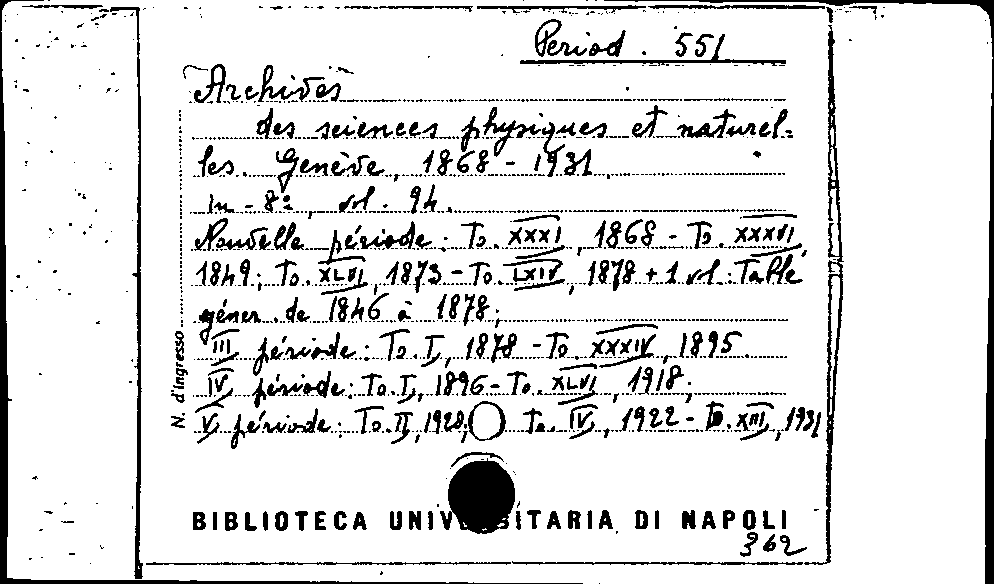 Period. 551
Archives
des sciences physiques et naturel-
les. Genève, 1868 - 1931.
in-8º, vol. 94.
Nouvelle période: To. XXXI, 1868 - To. XXXVI,
1849; To. XLVI, 1873 - To. LXIV, 1878 + 1 vol: Table
géner. de 1846 à 1878;
III période: To. I, 1878 - To. XXXIV, 1895.
IV période: To. I, 1896 - To. XLVI, 1918;
V période: To. II, 1920, To. IV, 1922 - To. XIII, 1931
N. d'ingresso
BIBLIOTECA UNIVERSITARIA DI NAPOLI
362